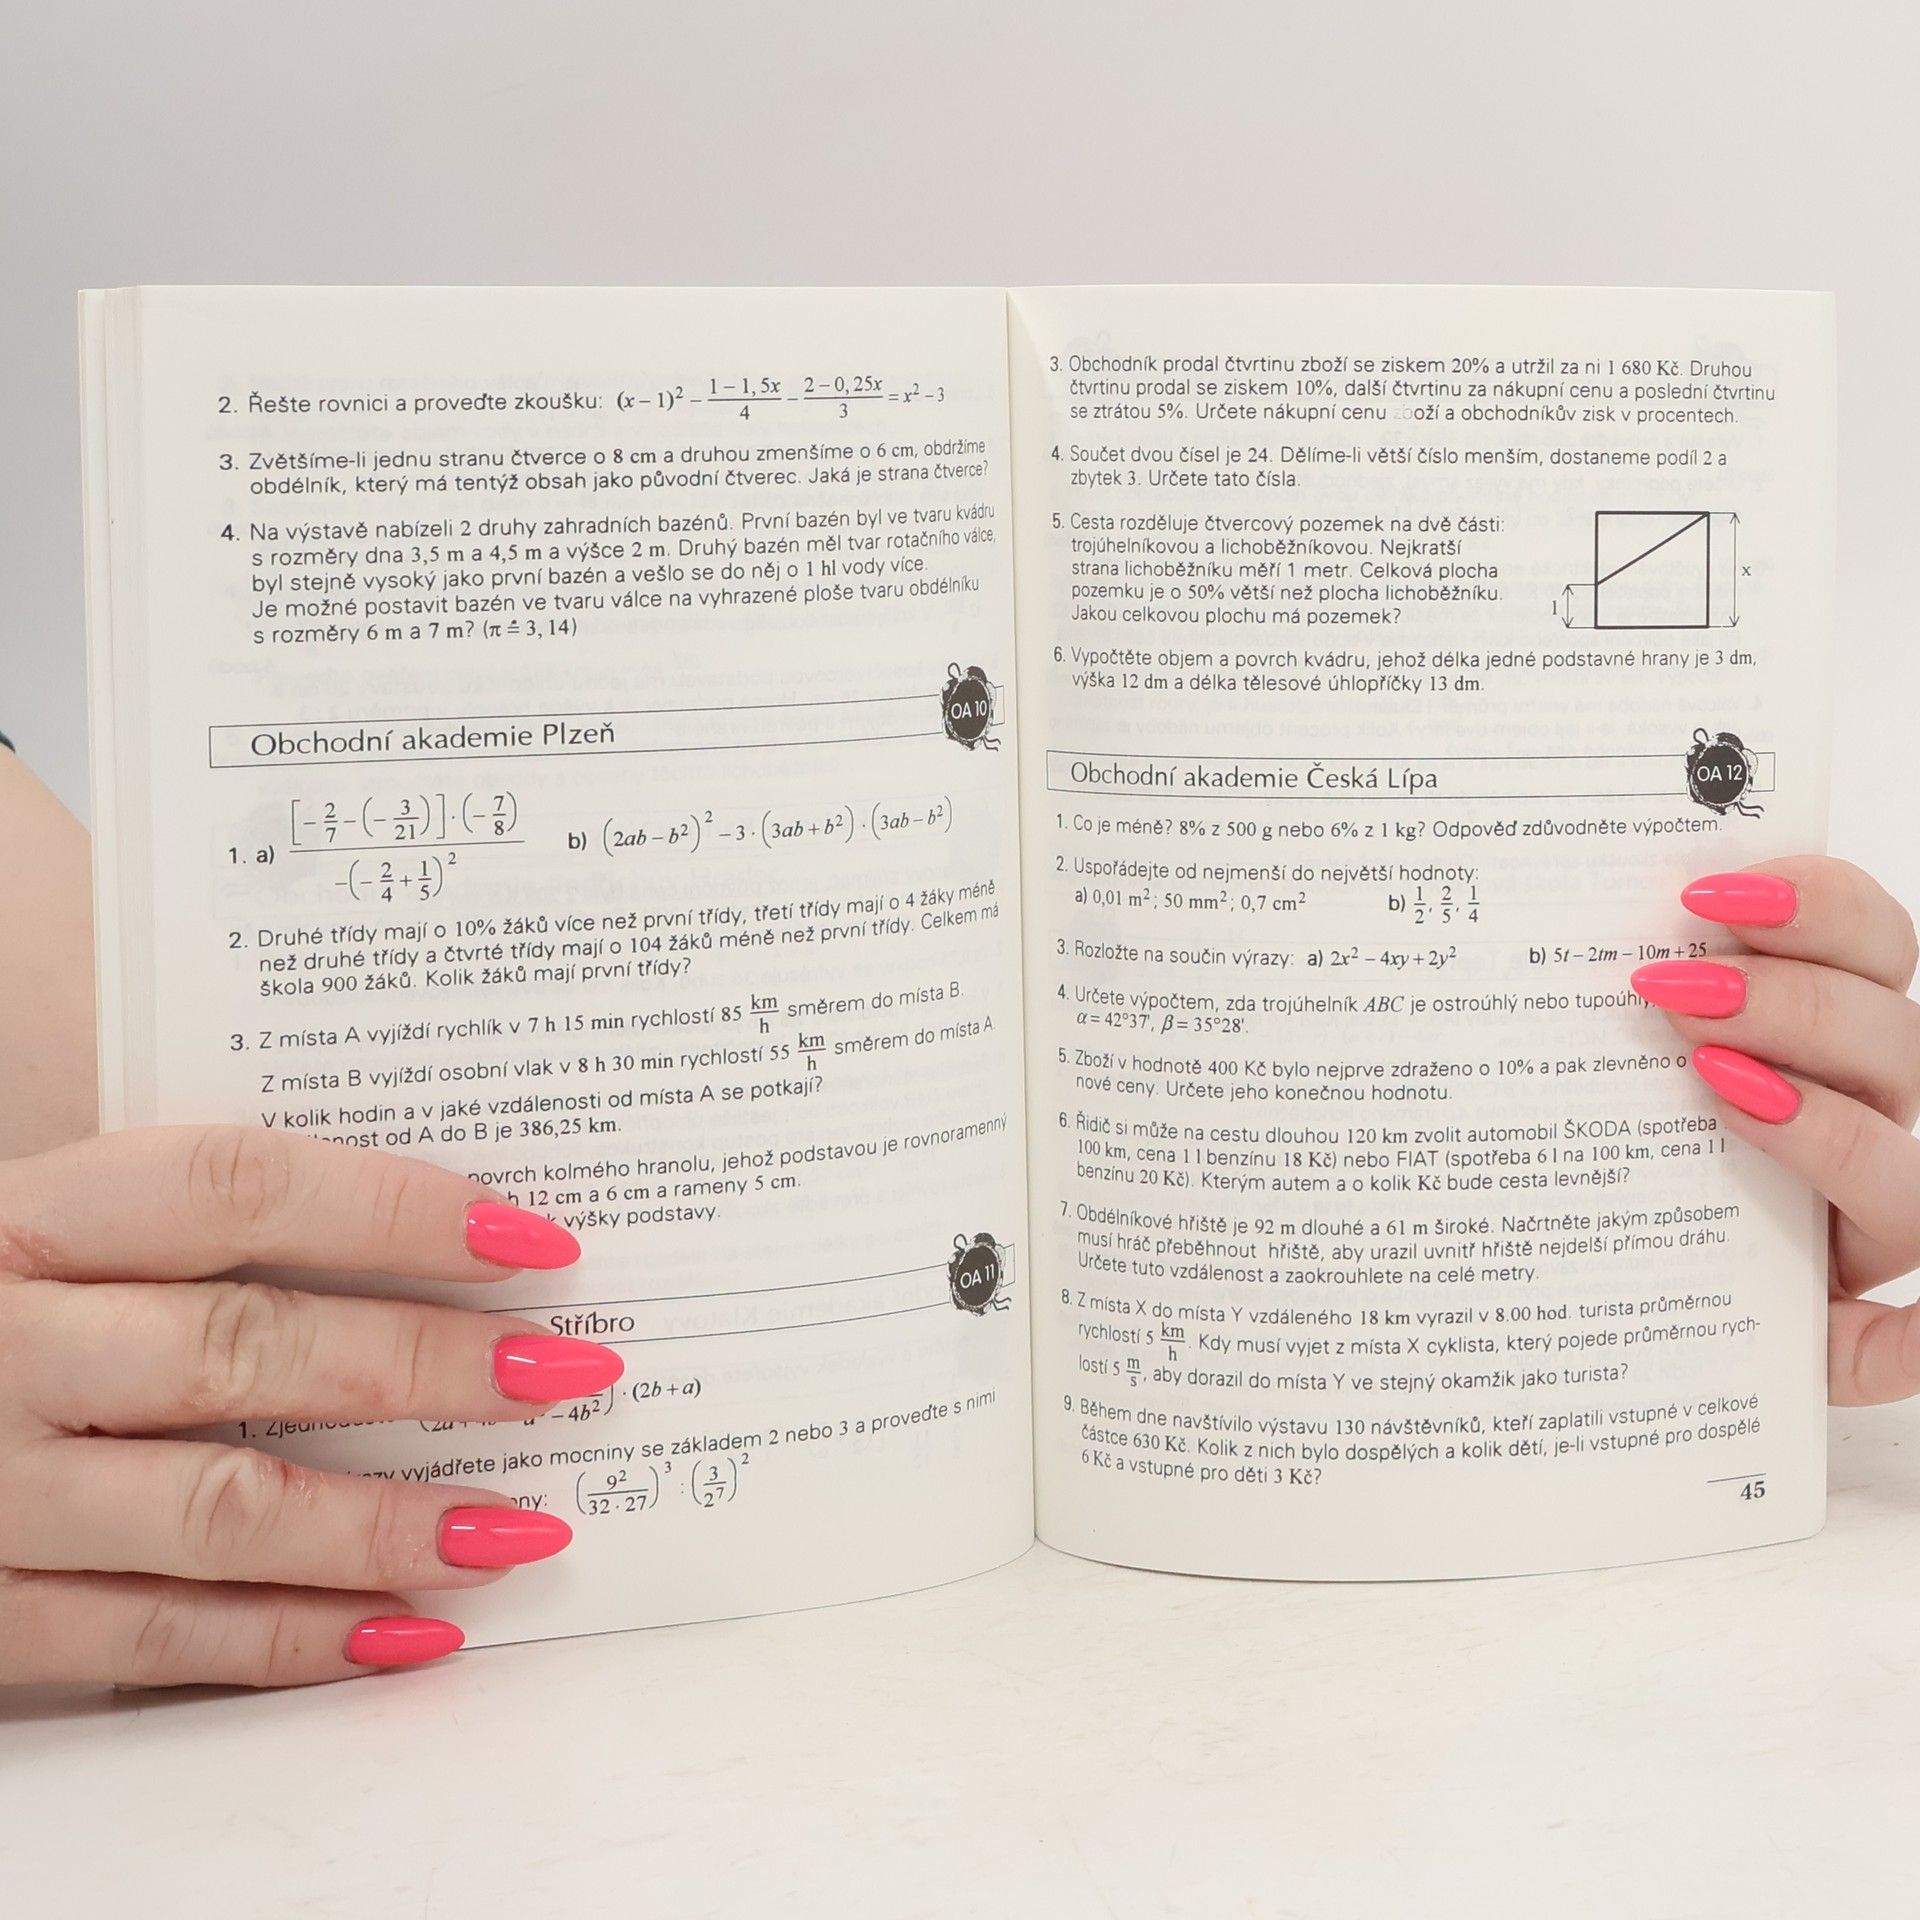 2. Řešte rovnici a proveďte zkoušku: (x – 1)² – (1 – 1, 5x)/4 – (2 – 0, 25x)/3 = x² – 3
3. Zvětšíme-li jednu stranu čtverce o 8 cm a druhou zmenšíme o 6 cm, obdržíme
obdélník, který má tentýž obsah jako původní čtverec. Jaká je strana čtverce?
4. Na výstavě nabízeli 2 druhy zahradních bazénů. První bazén byl ve tvaru kvádru
s rozměry dna 3,5 m a 4,5 m a výšce 2 m. Druhý bazén měl tvar rotačního válce,
byl stejně vysoký jako první bazén a vešlo se do něj o 1 hl vody více.
Je možné postavit bazén ve tvaru válce na vyhrazené ploše tvaru obdélníku
s rozměry 6 m a 7 m? (π ≐ 3, 14)
Obchodní akademie Plzeň
OA 10
1. a) [–2/7 – (–3/21)] · (–7/8) / –(–2/4 + 1/5)² b) (2ab – b²)² – 3 · (3ab + b²) · (3ab – b²)
2. Druhé třídy mají o 10% žáků více než první třídy, třetí třídy mají o 4 žáky méně
než druhé třídy a čtvrté třídy mají o 104 žáků méně než první třídy. Celkem má
škola 900 žáků. Kolik žáků mají první třídy?
3. Z místa A vyjíždí rychlík v 7 h 15 min rychlostí 85 km/h směrem do místa B.
Z místa B vyjíždí osobní vlak v 8 h 30 min rychlostí 55 km/h směrem do místa A.
V kolik hodin a v jaké vzdálenosti od místa A se potkají?
od A do B je 386,25 km.
povrch kolmého hranolu, jehož podstavou je rovnoramenný
12 cm a 6 cm a rameny 5 cm.
výšky podstavy.
Stříbro
OA 11
1. – 4b²) · (2b + a)
vyjádřete jako mocniny se základem 2 nebo 3 a proveďte s nimi
(9²/(32 · 27))³ : (3/2⁷)²
3. Obchodník prodal čtvrtinu zboží se ziskem 20% a utržil za ni 1 680 Kč. Druhou
čtvrtinu prodal se ziskem 10%, další čtvrtinu za nákupní cenu a poslední čtvrtinu
se ztrátou 5%. Určete nákupní cenu zboží a obchodníkův zisk v procentech.
4. Součet dvou čísel je 24. Dělíme-li větší číslo menším, dostaneme podíl 2 a
zbytek 3. Určete tato čísla.
5. Cesta rozděluje čtvercový pozemek na dvě části:
trojúhelníkovou a lichoběžníkovou. Nejkratší
strana lichoběžníku měří 1 metr. Celková plocha
pozemku je o 50% větší než plocha lichoběžníku.
Jakou celkovou plochu má pozemek?
1
x
6. Vypočtěte objem a povrch kvádru, jehož délka jedné podstavné hrany je 3 dm,
výška 12 dm a délka tělesové úhlopříčky 13 dm.
Obchodní akademie Česká Lípa
OA 12
1. Co je méně? 8% z 500 g nebo 6% z 1 kg? Odpověď zdůvodněte výpočtem.
2. Uspořádejte od nejmenší do největší hodnoty:
a) 0,01 m²; 50 mm²; 0,7 cm² b) 1/2, 2/5, 1/4
3. Rozložte na součin výrazy: a) 2x² – 4xy + 2y² b) 5t – 2tm – 10m + 25
4. Určete výpočtem, zda trojúhelník ABC je ostroúhlý nebo
α = 42°37', β = 35°28'.
5. Zboží v hodnotě 400 Kč bylo nejprve zdraženo o 10% a pak zlevněno o
nové ceny. Určete jeho konečnou hodnotu.
6. Řidič si může na cestu dlouhou 120 km zvolit automobil ŠKODA (spotřeba
100 km, cena 1 l benzínu 18 Kč) nebo FIAT (spotřeba 6 l na 100 km, cena 1 l
benzínu 20 Kč). Kterým autem a o kolik Kč bude cesta levnější?
7. Obdélníkové hřiště je 92 m dlouhé a 61 m široké. Načrtněte jakým způsobem
musí hráč přeběhnout hřiště, aby urazil uvnitř hřiště nejdelší přímou dráhu.
Určete tuto vzdálenost a zaokrouhlete na celé metry.
8. Z místa X do místa Y vzdáleného 18 km vyrazil v 8.00 hod. turista průměrnou
rychlostí 5 km/h. Kdy musí vyjet z místa X cyklista, který pojede průměrnou rych-
lostí 5 m/s, aby dorazil do místa Y ve stejný okamžik jako turista?
9. Během dne navštívilo výstavu 130 návštěvníků, kteří zaplatili vstupné v celkové
částce 630 Kč. Kolik z nich bylo dospělých a kolik dětí, je-li vstupné pro dospělé
6 Kč a vstupné pro děti 3 Kč?
45